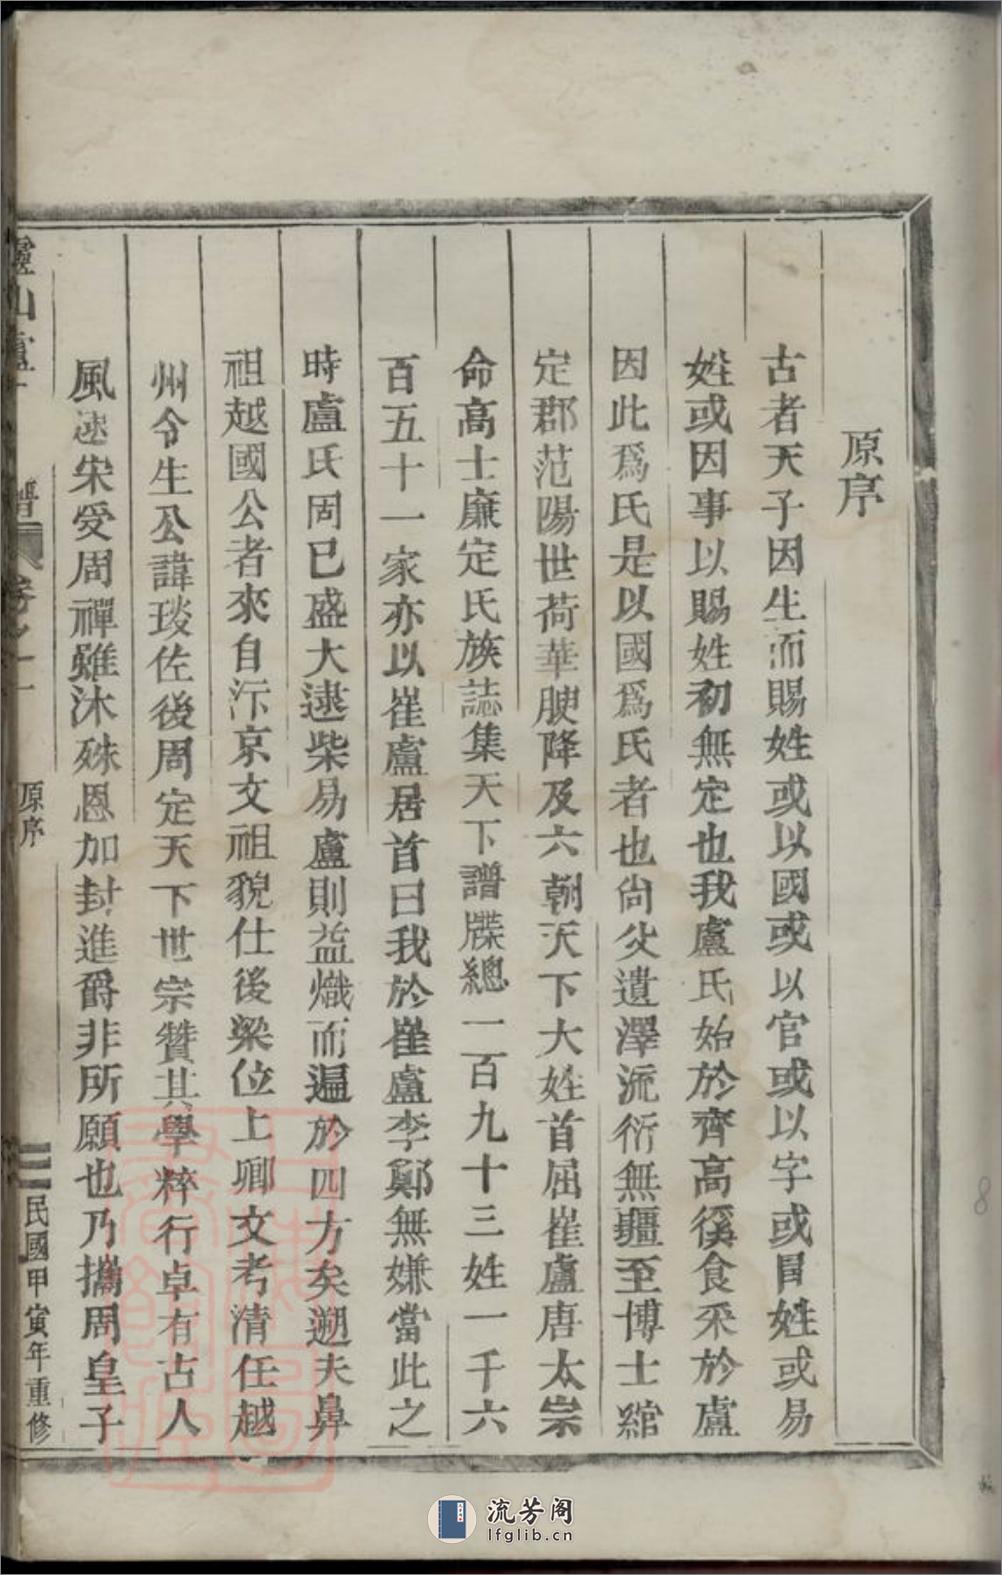 原序
古者天子因生而賜姓或以國或以官或以字或冒姓或易
姓或因事以賜姓初無定也我盧氏始於齊高徯食采於盧
因此爲氏是以國爲氏者也尙父遺澤流衍無疆至博士綰
定郡范陽世荷華腴降及六朝天下大姓首屈崔盧唐太崇
命高士廉定氏族誌集天下譜牒總一百九十三姓一千六
百五十一家亦以崔盧居首曰我於崔盧李鄭無嫌當此之
時盧氏固已盛大逮柴易盧則益熾而遍於四方矣遡夫鼻
祖越國公者來自汴京文祖貌仕後梁位上卿文考清任越
州令生公諱琰佐後周定天下世宗贊其學粹行卓有古人
風逮宋受周禪雖沐殊恩加封進爵非所願也乃攜周皇子
山盧
譜
卷之一
原序
民國甲寅年重修
8
流芳阁
lfglib.cn